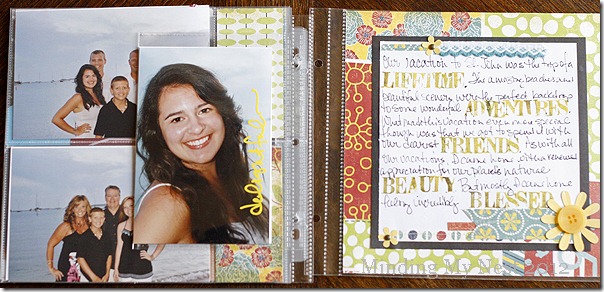 delightful
Our vacation to St. John was the trip of a
LIFETIME. The amazing beaches and
beautiful scenery were the perfect backdrop
to some wonderful ADVENTURES.
What made this vacation even more special
though was that we got to spend it with
our dearest FRIENDS. As with all
our vacations, I came home with a renewed
appreciation for our planet's natural
BEAUTY. But mostly, I came home
feeling incredibly BLESSED.
Minding My Nest 2012